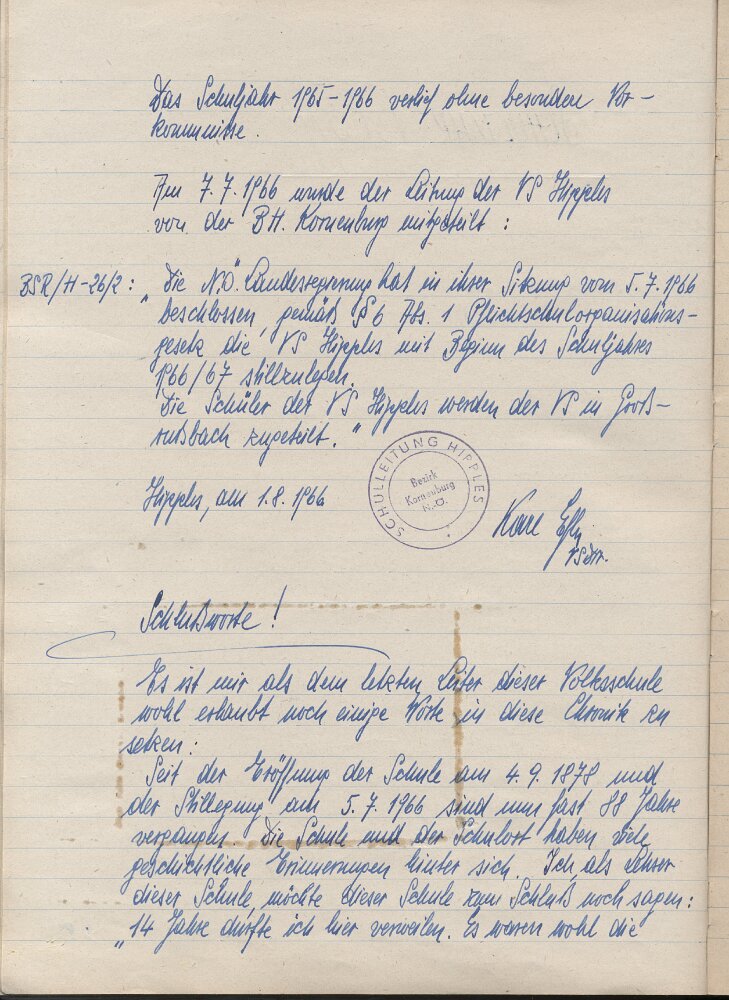 Das Schuljahr 1965-1966 verlief ohne besonden Vor-
kommnisse.
Am 7.7.1966 wurde der Leitung der VS Hipples
von der BH. Korneuburg mitgeteilt:
BSR/H-26/2: „Die N.Ö. Landesregierung hat in ihrer Sitzung vom 5.7.1966
beschlossen, gemäß § 6 Abs. 1 Pflichtschulorganisations-
gesetz die VS Hipples mit Beginn des Schuljahres
1966/67 stillzulegen.
Die Schüler der VS Hipples werden der VS in Groß-
rußbach zugeteilt."
SCHULLEITUNG HIPPLES
Bezirk
Korneuburg
N.Ö.
Hipples, am 1.8.1966
Karl
VSDir.
Schlußworte!
Es ist mir als dem letzten Leiter dieser Volksschule
wohl erlaubt noch einige Worte in diese Chronik zu
setzen:
Seit der Eröffnung der Schule am 4.9.1878 und
der Stillegung am 5.7.1966 sind nun fast 88 Jahre
vergangen. Die Schule und der Schulort haben viele
geschichtliche Erinnerungen hinter sich. Ich als Lehrer
dieser Schule, möchte dieser Schule zum Schluß noch sagen:
„14 Jahre durfte ich hier verweilen. Es waren wohl die